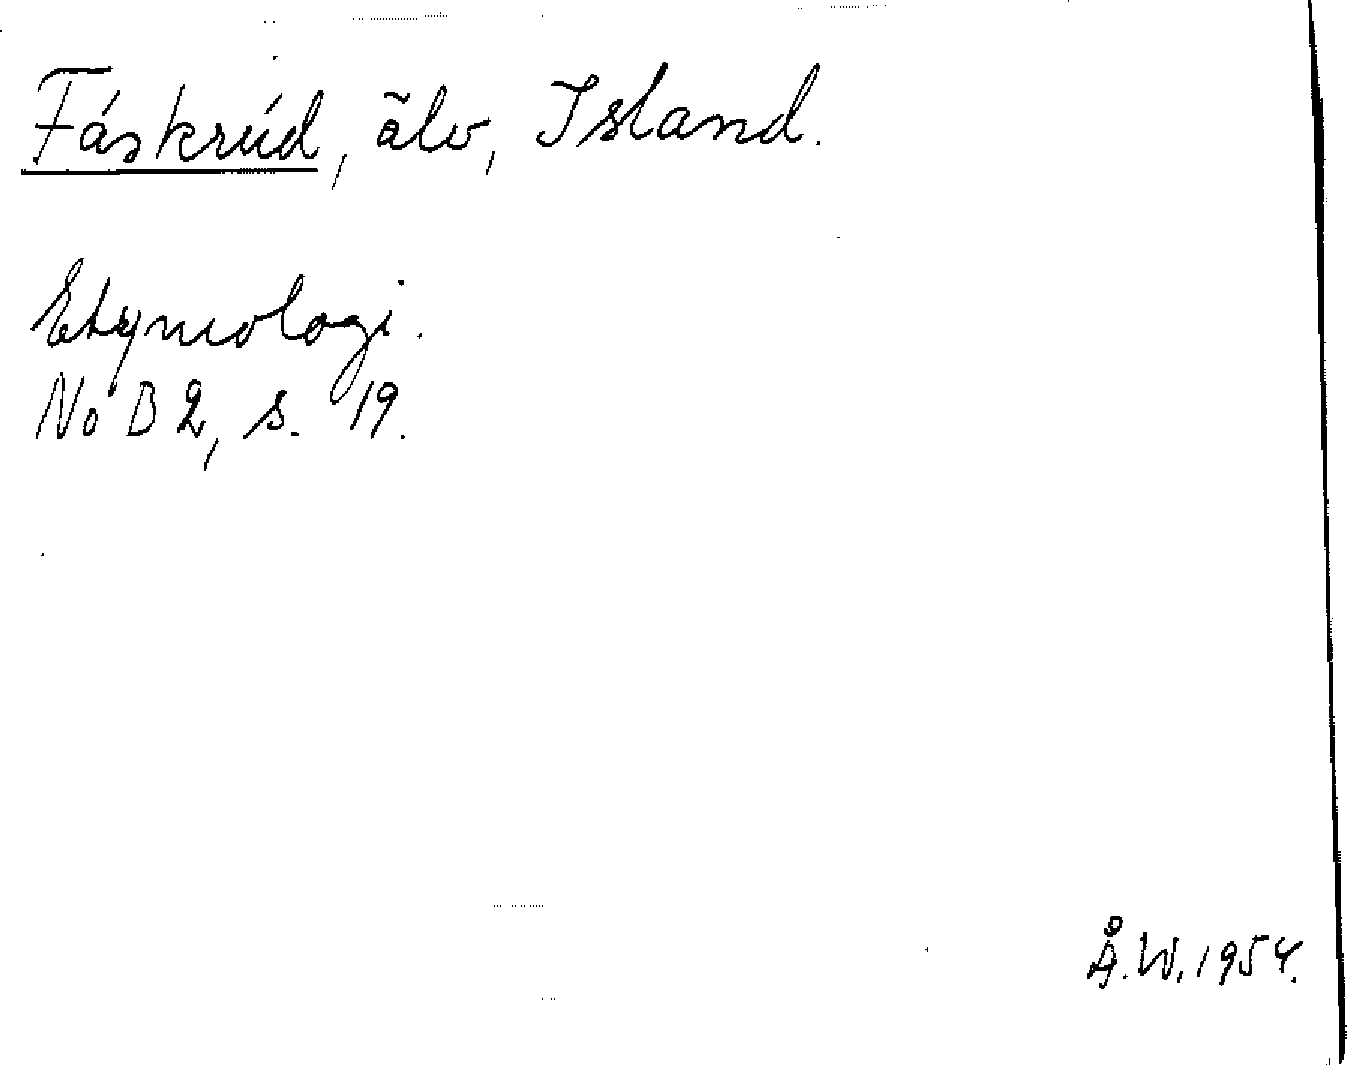 Fáskrúd, älv, Island.
Etymologi.
NoB 2, s. 19.
Å.W. 1954.